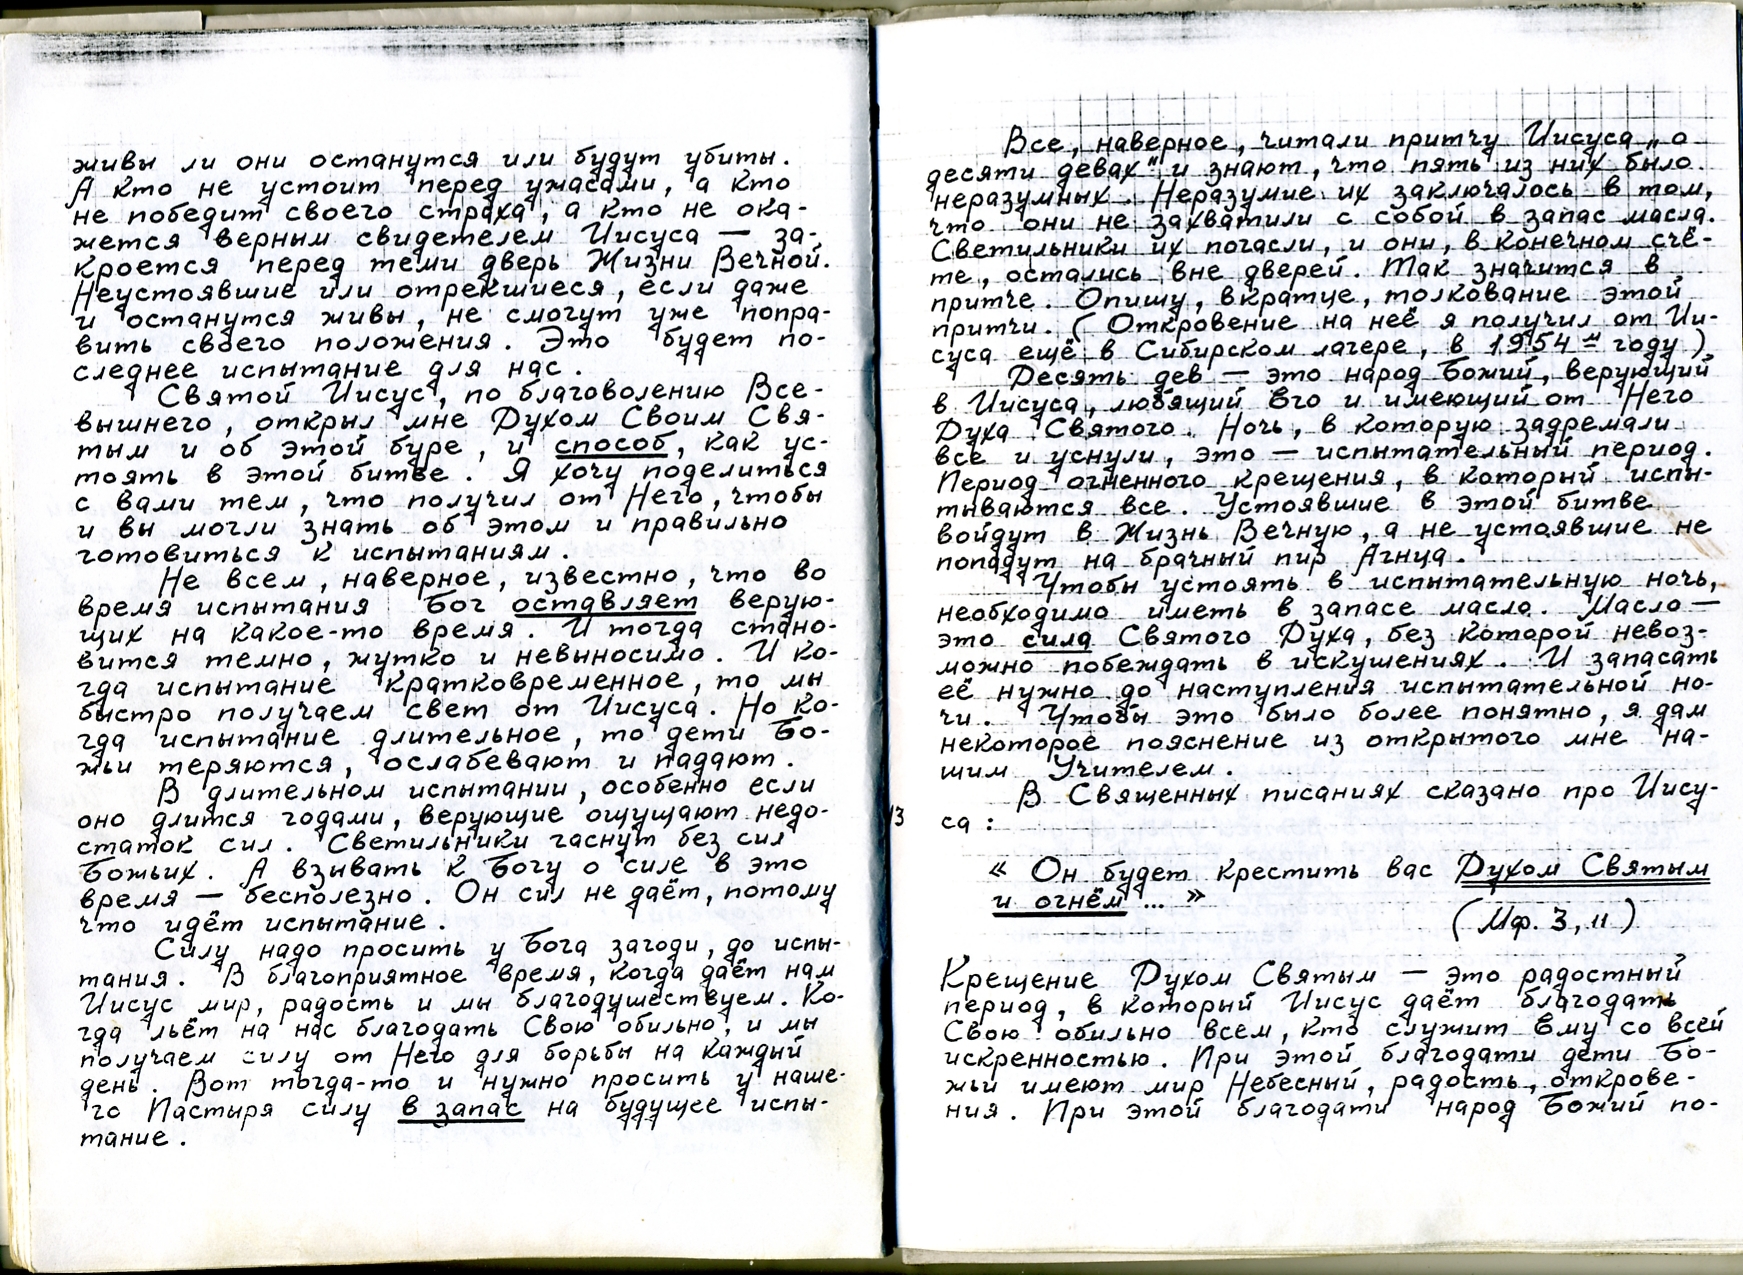 живы ли они останутся или будут убиты.
А кто не устоит перед ужасами, а кто
не победит своего страха, а кто не ока-
жется верным свидетелем Иисуса — за-
кроется перед теми дверь Жизни Вечной.
Неустоявшие или отрекшиеся, если даже
и останутся живы, не смогут уже попра-
вить своего положения. Это будет по-
следнее испытание для нас.
Святой Иисус, по благоволению Все-
вышнего, открыл мне Духом Своим Свя-
тым и об этой буре, и способ, как ус-
тоять в этой битве. Я хочу поделиться
с вами тем, что получил от Него, чтобы
и вы могли знать об этом и правильно
готовиться к испытаниям.
Не всем, наверное, известно, что во
время испытания Бог оставляет верую-
щих на какое-то время. И тогда стано-
вится темно, жутко и невыносимо. И ко-
гда испытание кратковременное, то мы
быстро получаем свет от Иисуса. Но ко-
гда испытание длительное, то дети Бо-
жьи теряются, ослабевают и падают.
В длительном испытании, особенно если
оно длится годами, верующие ощущают недо-
статок сил. Светильники гаснут без сил
Божьих. А взывать к Богу о силе в это
время — бесполезно. Он сил не даёт, потому
что идёт испытание.
Силу надо просить у Бога загоди, до испы-
тания. В благоприятное время, когда даёт нам
Иисус мир, радость и мы благодушествуем. Ко-
гда льёт на нас благодать Свою обильно, и мы
получаем силу от Него для борьбы на каждый
день. Вот тогда-то и нужно просить у наше-
го Пастыря силу в запас на будущее испы-
тание.
13
Все, наверное, читали притчу Иисуса „о
десяти девах" и знают, что пять из них было
неразумных. Неразумие их заключалось в том,
что они не захватили с собой в запас масла.
Светильники их погасли, и они, в конечном счё-
те, остались вне дверей. Так значится в
притче. Опишу, вкратце, толкование этой
притчи. (Откровение на неё я получил от Ии-
суса ещё в Сибирском лагере, в 1954 м году)
Десять дев — это народ Божий, верующий
в Иисуса, любящий Его и имеющий от Него
Духа Святого. Ночь, в которую задремали
все и уснули, это — испытательный период.
Период огненного крещения, в который испы-
тываются все. Устоявшие в этой битве
войдут в Жизнь Вечную, а не устоявшие не
попадут на брачный пир Агнца.
Чтобы устоять в испытательную ночь,
необходимо иметь в запасе масло. Масло —
это сила Святого Духа, без которой невоз-
можно побеждать в искушениях. И запасать
её нужно до наступления испытательной но-
чи. Чтобы это было более понятно, я дам
некоторое пояснение из открытого мне на-
шим Учителем.
В Священных писаниях сказано про Иису-
са :
« Он будет крестить вас Духом Святым
и огнём ... »
(Мф. 3, 11)
Крещение Духом Святым — это радостный
период, в который Иисус даёт благодать
Свою обильно всем, кто служит Ему со всей
искренностью. При этой благодати дети Бо-
жьи имеют мир Небесный, радость, открове-
ния. При этой благодати народ Божий по-